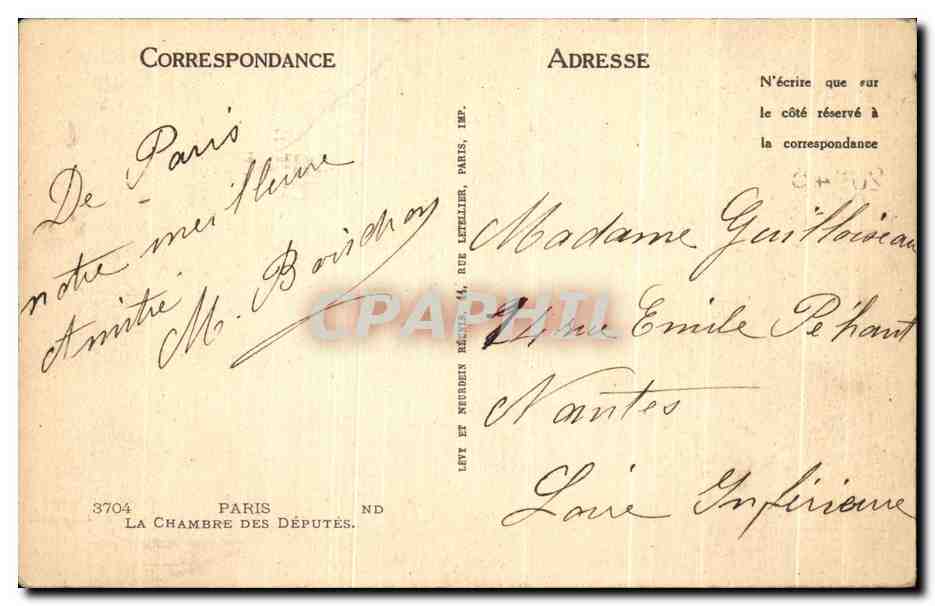 CORRESPONDANCE
De Paris
notre meilleure
Amitié
M. Boischon
3704 PARIS ND
LA CHAMBRE DES DÉPUTÉS.
LÉVY ET NEURDEIN RÉUNIS, 44, RUE LETELLIER, PARIS, IMP.
ADRESSE
N'écrire que sur
le côté réservé à
la correspondance
Madame Guilloiseau
24 rue Emile Péhant
Nantes
Loire Inférieure
CPAPHIL